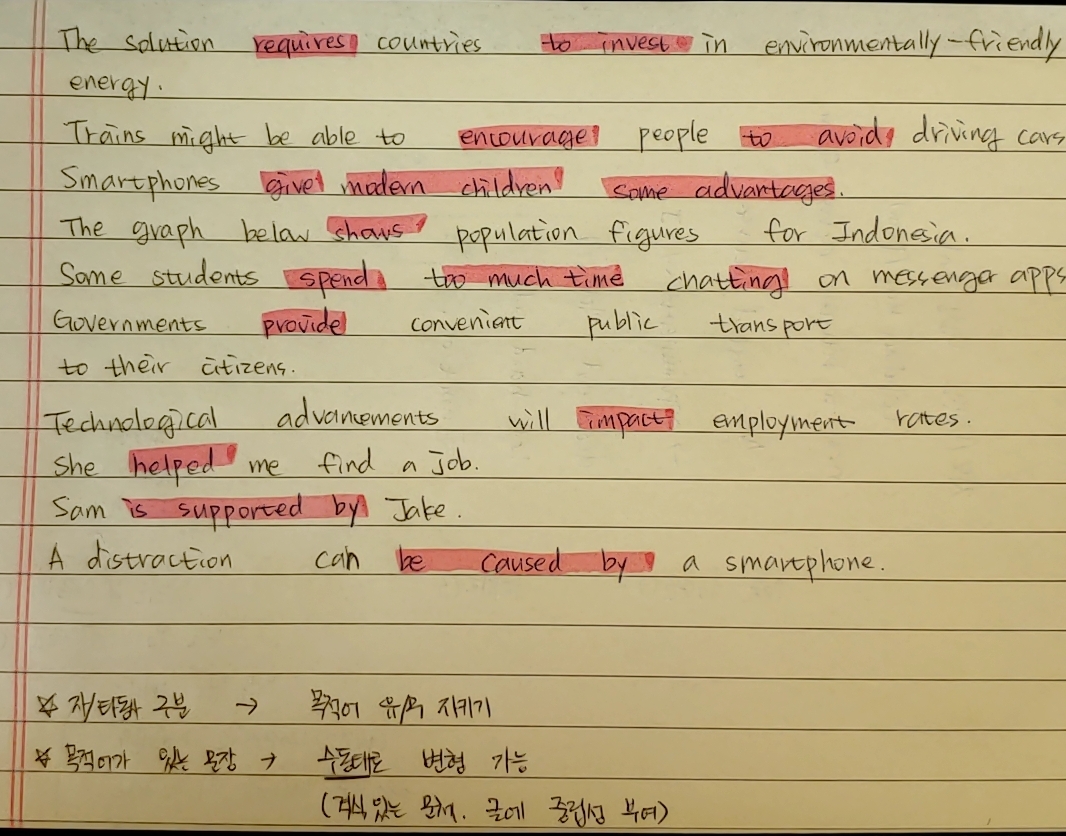 The solution requires countries to invest in environmentally-friendly
energy.
Trains might be able to encourage people to avoid driving cars
Smartphones give modern children some advantages.
The graph below shows population figures for Indonesia.
Some students spend too much time chatting on messenger apps
Governments provide convenient public transport
to their citizens.
Technological advancements will impact employment rates.
She helped me find a job.
Sam is supported by Jake.
A distraction can be caused by a smartphone.
☆ 자/타동사 구분 → 목적어 유/무 지키기
☆ 목적어가 있는 문장 → 수동태로 변형 가능
(격식있는 문체. 글에 중립성 부여)